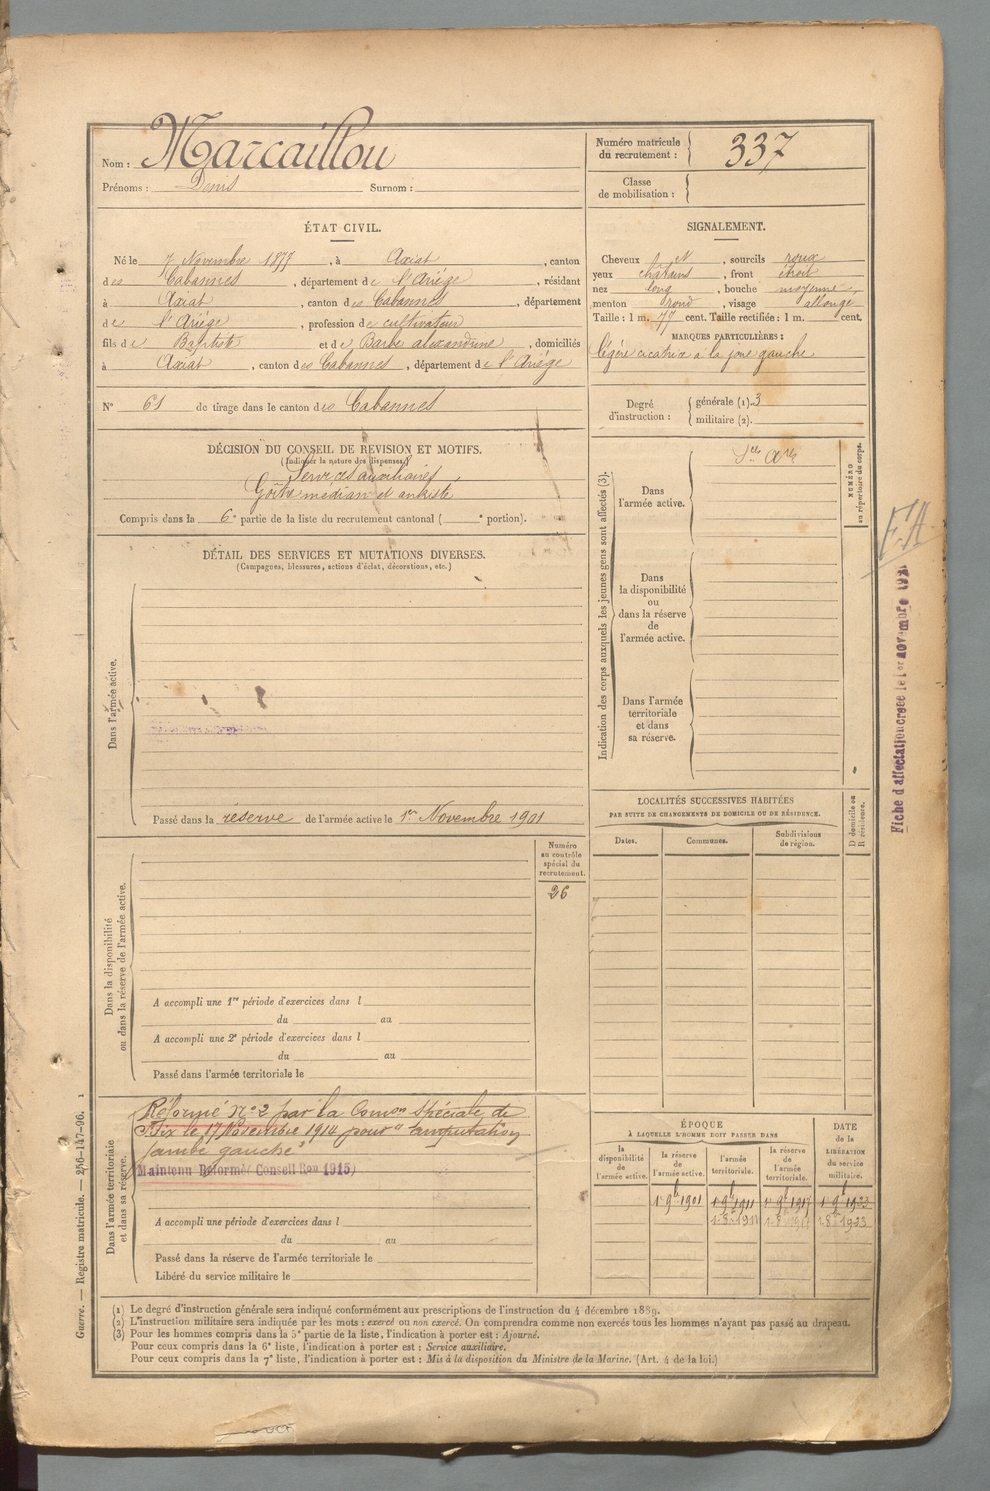 Nom : Marcaillou
Prénoms : Denis Surnom :
Numéro matricule du recrutement : 337
Classe de mobilisation :
ÉTAT CIVIL.
Né le 7 Novembre 1877, à Axiat, canton
des Cabannes, département de l'Ariége, résidant
à Axiat, canton des Cabannes, département
de l'Ariége, profession de cultivateur
fils de Baptiste et de Barbe alexandrine, domiciliés
à Axiat, canton des Cabannes, département de l'Ariége
N° 61 de tirage dans le canton des Cabannes
SIGNALEMENT.
Cheveux et sourcils roux
yeux châtains, front étroit
nez long, bouche moyenne,
menton rond, visage allongé
Taille : 1 m. 77 cent. Taille rectifiée : 1 m. cent.
MARQUES PARTICULIÈRES :
légère cicatrice à la joue gauche
Degré d'instruction : générale (1). 3
militaire (2).
DÉCISION DU CONSEIL DE REVISION ET MOTIFS.
(Indiquer la nature des dispenses.)
Services auxiliaires
Goître médian et
Compris dans la 6e partie de la liste du recrutement cantonal ( e portion).
DÉTAIL DES SERVICES ET MUTATIONS DIVERSES.
(Campagnes, blessures, actions d'éclat, décorations, etc.)
Dans l'armée active.
Passé dans la réserve de l'armée active le 1er Novembre 1901
Indication des corps auxquels les jeunes gens sont affectés (3).
Dans l'armée active.
Sces Ares
NUMÉRO au répertoire du corps.
Dans la disponibilité ou dans la réserve de l'armée active.
Dans l'armée territoriale et dans sa réserve.
EA
Fiche d'affectation créée le 1er novembre
LOCALITÉS SUCCESSIVES HABITÉES
PAR SUITE DE CHANGEMENTS DE DOMICILE OU DE RÉSIDENCE.
Dates. Communes. Subdivisions de région.
D domicile ou R résidence.
Dans la disponibilité ou dans la réserve de l'armée active.
Numéro au contrôle spécial du recrutement.
26
A accompli une 1re période d'exercices dans l
du au
A accompli une 2e période d'exercices dans l
du au
Passé dans l'armée territoriale le
Dans l'armée territoriale et dans sa réserve.
Réformé n° 2 par la Comon Spéciale de
Foix le 17 Novembre 1914 pour "amputation
jambe gauche"
Maintenu Réformé (Conseil Ron 1915)
A accompli une période d'exercices dans l
du au
Passé dans la réserve de l'armée territoriale le
Libéré du service militaire le
ÉPOQUE
À LAQUELLE L'HOMME DOIT PASSER DANS
la disponibilité de l'armée active.
la réserve de l'armée active.
l'armée territoriale.
la réserve de l'armée territoriale.
DATE de la LIBÉRATION du service militaire.
1 9b 1901 1 9b 1911 1 9b 1917 1 9b 1923
(1) Le degré d'instruction générale sera indiqué conformément aux prescriptions de l'instruction du 4 décembre 1889.
(2) L'instruction militaire sera indiquée par les mots : exercé ou non exercé. On comprendra comme non exercés tous les hommes n'ayant pas passé au drapeau.
(3) Pour les hommes compris dans la 5e partie de la liste, l'indication à porter est : Ajourné.
Pour ceux compris dans la 6e liste, l'indication à porter est : Service auxiliaire.
Pour ceux compris dans la 7e liste, l'indication à porter est : Mis à la disposition du Ministre de la Marine. (Art. 4 de la loi.)
Guerre. — Registre matricule. — 256-147-96. 1